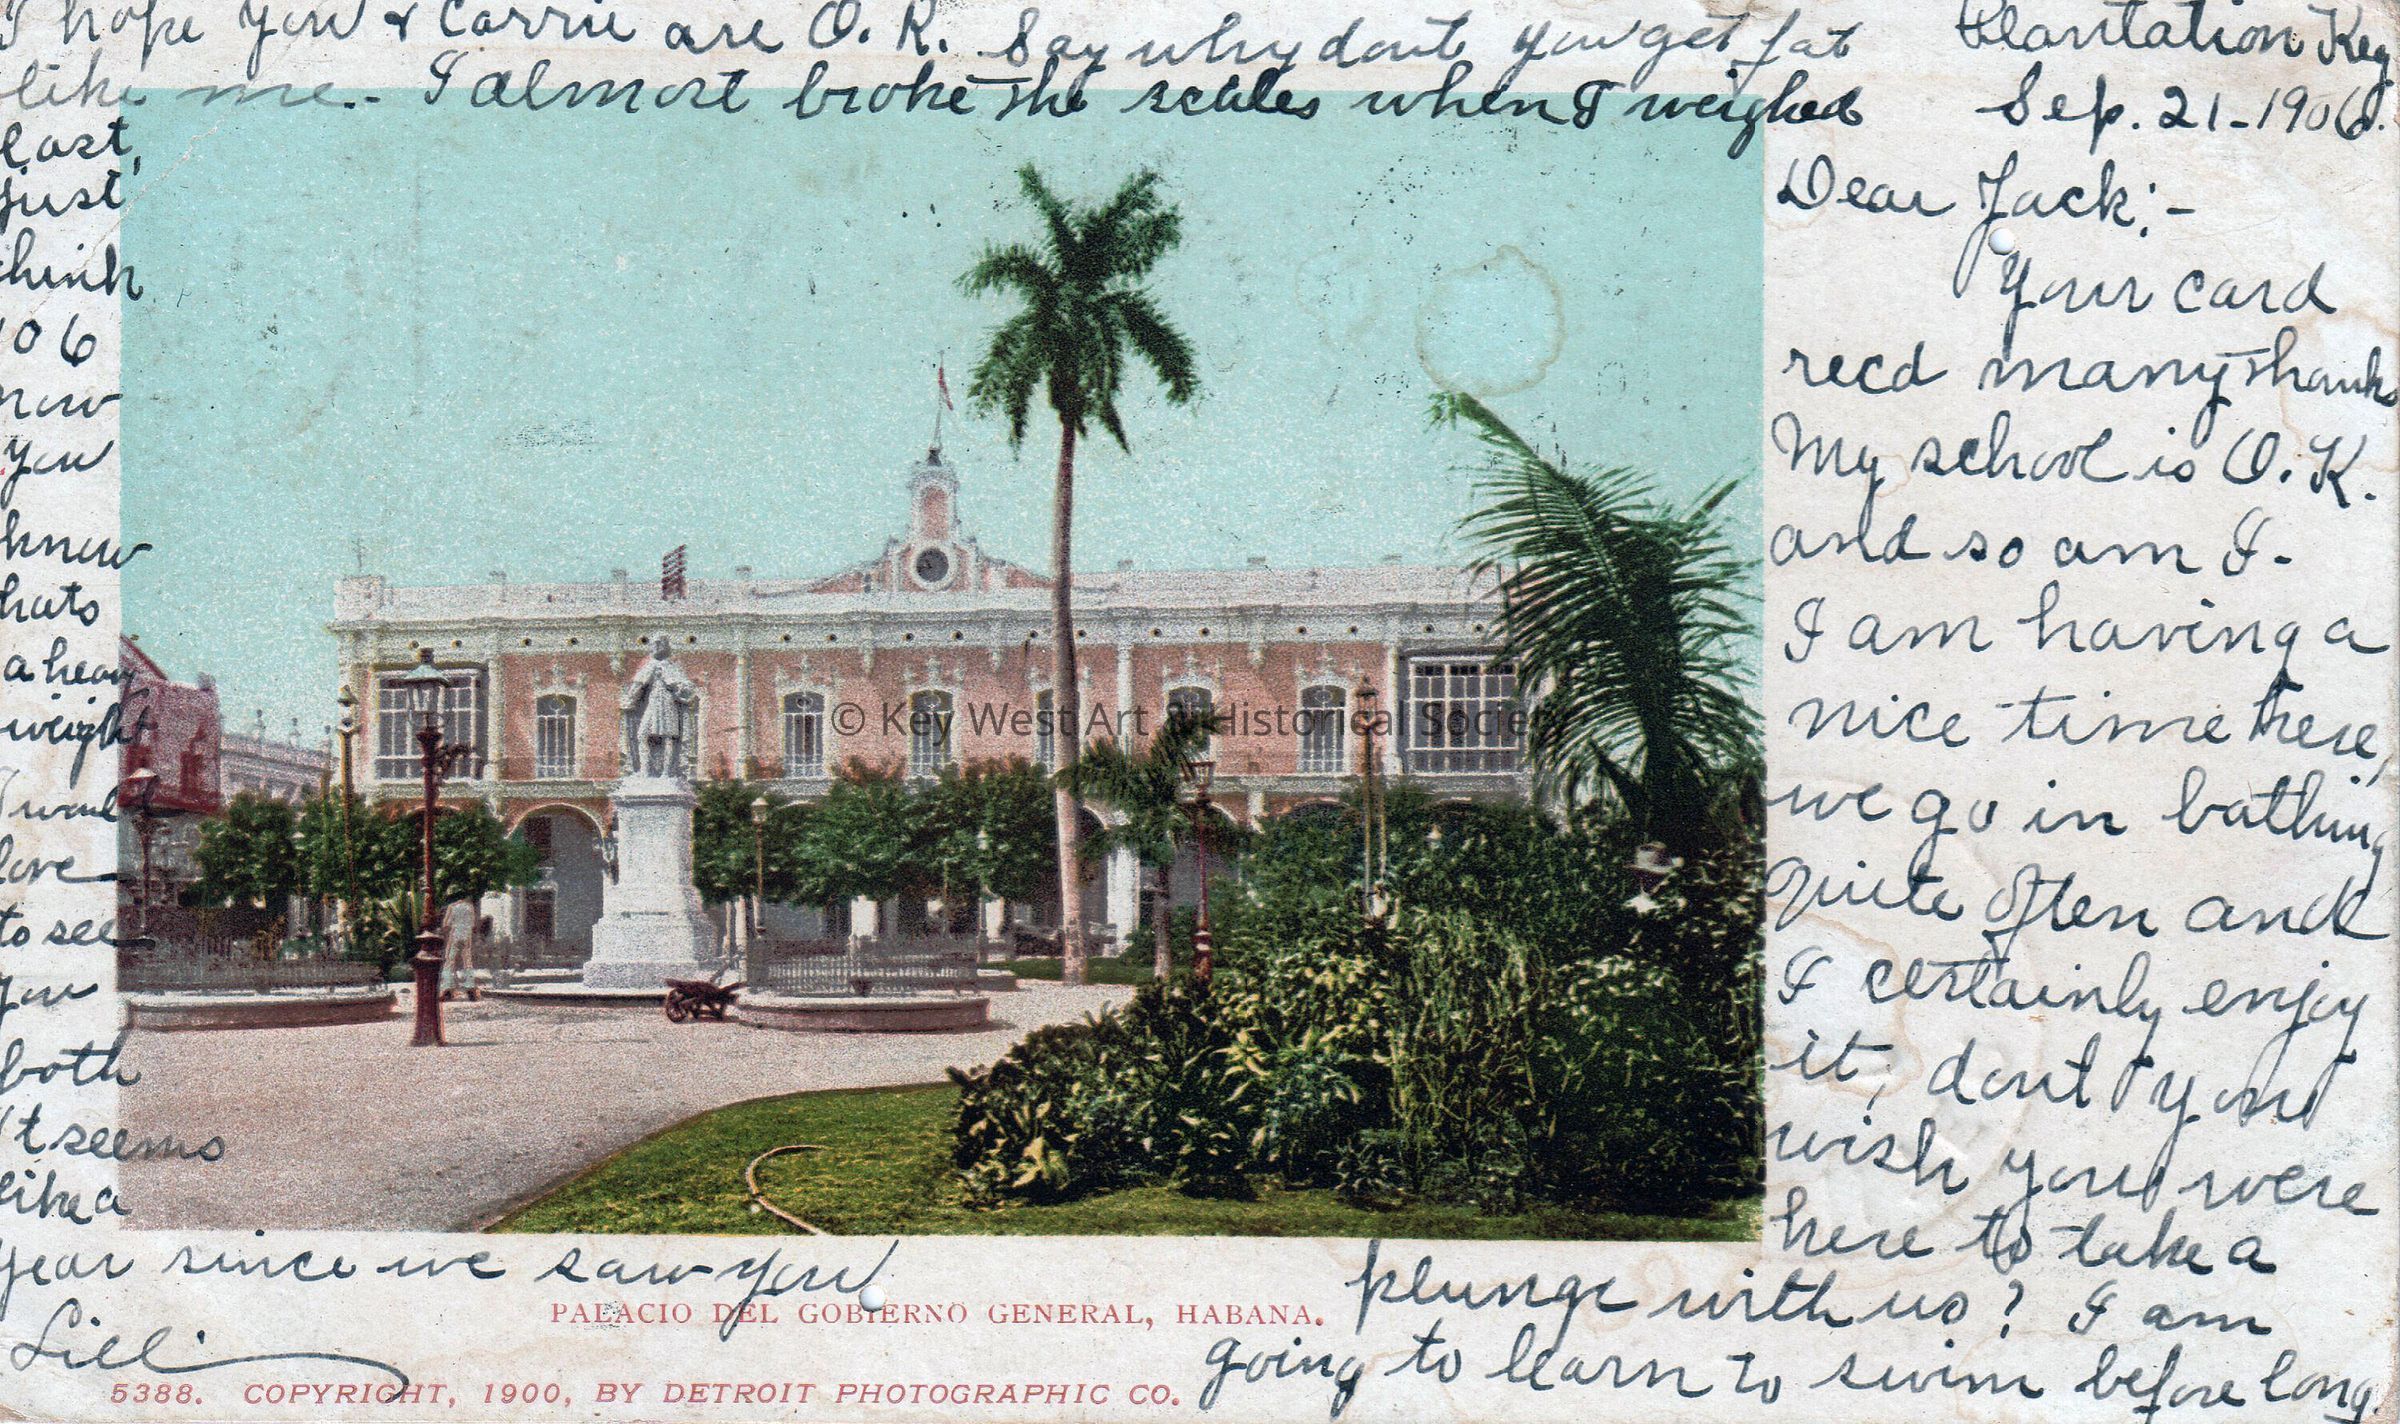 Plantation Key
Sep. 21-1906.
Dear Jack:-
Your card
recd many thanks
My school is O.K.
and so am I-
I am having a
nice time here,
we go in bathing
quite often and
I certainly enjoy
it, dont you
wish you were
here to take a
plunge with us? I am
going to learn to swim before long.
I hope you & Carrie are O.K. Say why dont you get fat
like me.- I almost broke the scales when I weighed
last,
just
think
106
now
you
know
thats
a heavy
weight
I would
love
to see
you
both
it seems
like a
year since we saw you
Lill
© Key West Art & Historical Society
PALACIO DEL GOBIERNO GENERAL, HABANA.
5388. COPYRIGHT, 1900, BY DETROIT PHOTOGRAPHIC CO.